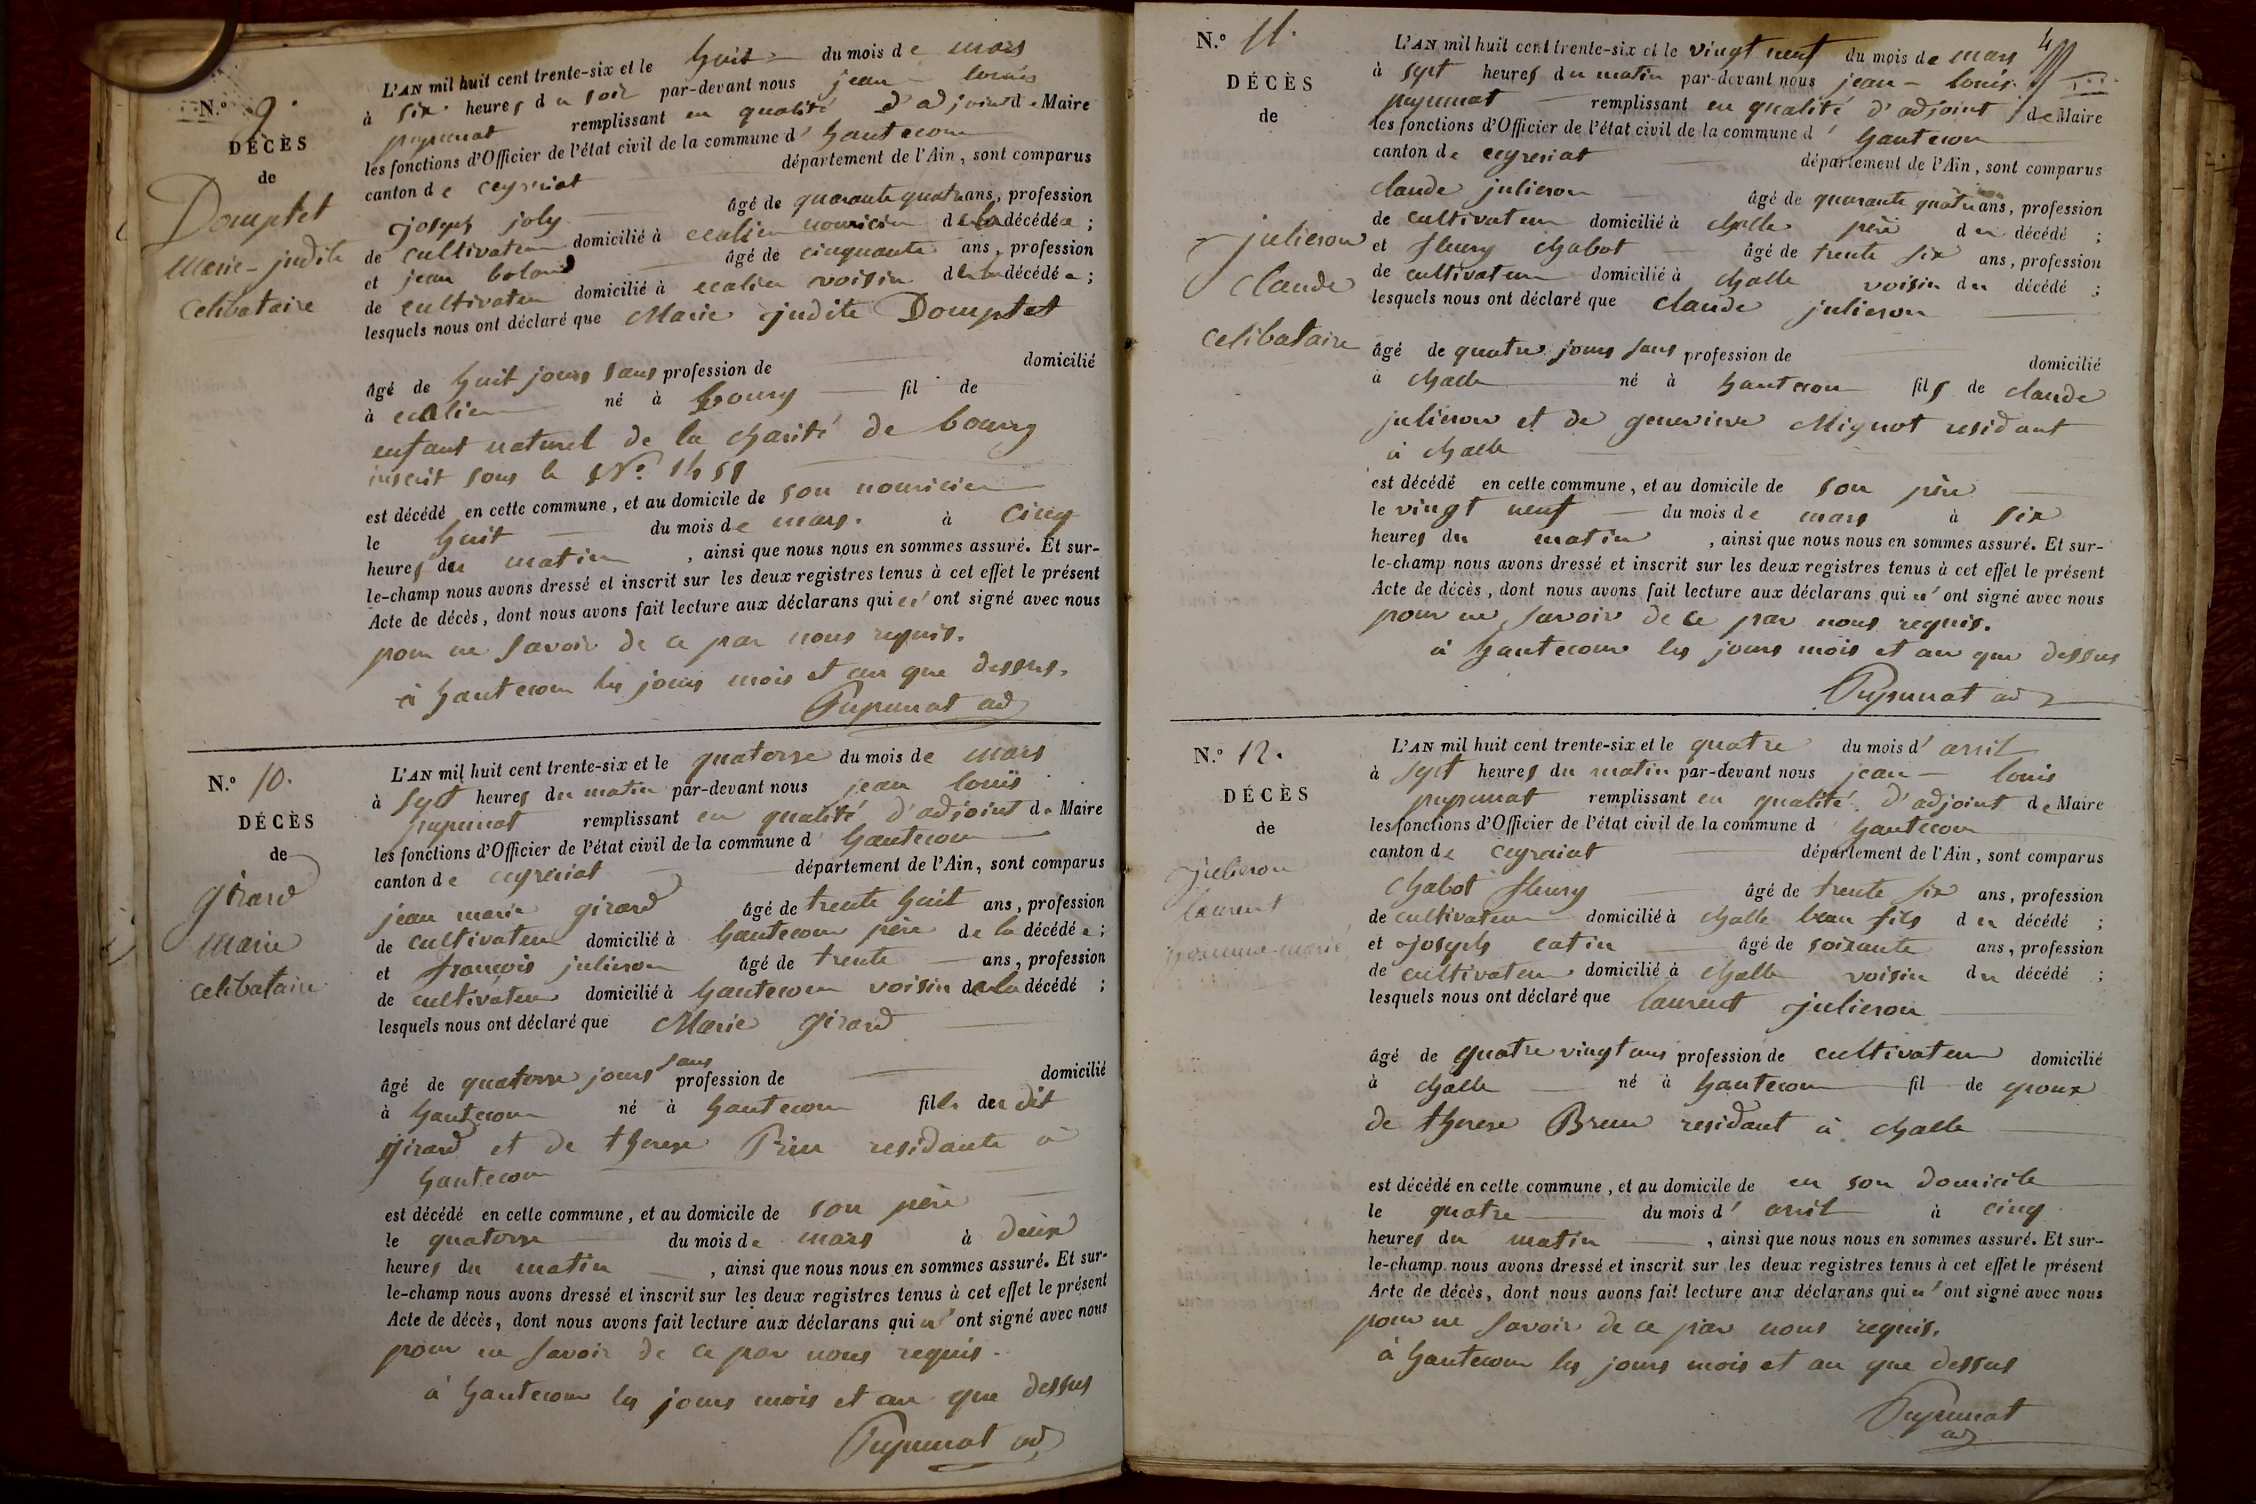 N.° 9.
DÉCÈS
de
Domptet
Marie-judite
celibataire
L'AN mil huit cent trente-six et le huit du mois de mars
à six heures du soir par-devant nous jean - louis
pupunat remplissant en qualité d'adjoint de Maire
les fonctions d'Officier de l'état civil de la commune d' hautecour
canton de ceyzeriat département de l'Ain, sont comparus
joseph joly âgé de quarante quatre ans, profession
de cultivateur domicilié à nouricier de la décédée ;
et jean âgé de cinquante ans, profession
de cultivateur domicilié à voisin de la décédée ;
lesquels nous ont déclaré que Marie judite Domptet
âgé de huit jours sans profession de domicilié
à né à bourg fil de
enfant naturel de la charité de bourg
inscrit sous le N.°
est décédé en cette commune, et au domicile de son nouricier
le huit du mois de mars. à cinq
heures du matin, ainsi que nous nous en sommes assuré. Et sur-
le-champ nous avons dressé et inscrit sur les deux registres tenus à cet effet le présent
Acte de décès, dont nous avons fait lecture aux déclarans qui n' ont signé avec nous
pour ne savoir de ce par nous requis.
à hautecour les jours mois et an que dessus.
Pupunat ad
N.° 10.
DÉCÈS
de
girard
marie
celibataire
L'AN mil huit cent trente-six et le quatorse du mois de mars
à sept heures du matin par-devant nous jean louis
pupunat remplissant en qualité d'adjoint de Maire
les fonctions d'Officier de l'état civil de la commune d' hautecour
canton de ceyzeriat département de l'Ain, sont comparus
jean marie girard âgé de trente huit ans, profession
de cultivateur domicilié à hautecour père de la décédée ;
et françois julieron âgé de trente ans, profession
de cultivateur domicilié à hautecour voisin de la décédé ;
lesquels nous ont déclaré que Marie girard
âgé de quatorse jours sans profession de domicilié
à hautecour né à hautecour fille du dit
girard et de therese residante à
hautecour
est décédé en cette commune, et au domicile de son père
le quatorse du mois de mars à deux
heures du matin, ainsi que nous nous en sommes assuré. Et sur-
le-champ nous avons dressé et inscrit sur les deux registres tenus à cet effet le présent
Acte de décès, dont nous avons fait lecture aux déclarans qui n' ont signé avec nous
pour ne savoir de ce par nous requis.
à hautecour les jours mois et an que dessus
Pupunat ad
4
N.° 11.
DÉCÈS
de
julieron
claude
celibataire
L'AN mil huit cent trente-six et le vingt neuf du mois de mars
à sept heures du matin par-devant nous jean - louis
pupunat remplissant en qualité d'adjoint de Maire
les fonctions d'Officier de l'état civil de la commune d' hautecour
canton de ceyzeriat département de l'Ain, sont comparus
claude julieron âgé de quarante quatre ans, profession
de cultivateur domicilié à challe père du décédé ;
et fleury chabot âgé de trente six ans, profession
de cultivateur domicilié à challe voisin du décédé ;
lesquels nous ont déclaré que claude julieron
âgé de quatre jours sans profession de domicilié
à challe né à hautecour fils de claude
julieron et de genevieve Mignot residant
à challe
est décédé en cette commune, et au domicile de son père
le vingt neuf du mois de mars à six
heures du matin, ainsi que nous nous en sommes assuré. Et sur-
le-champ nous avons dressé et inscrit sur les deux registres tenus à cet effet le présent
Acte de décès, dont nous avons fait lecture aux déclarans qui n' ont signé avec nous
pour ne savoir de ce par nous requis.
à hautecour les jours mois et an que dessus
Pupunat ad
N.° 12.
DÉCÈS
de
julieron
laurent
homme-marié
L'AN mil huit cent trente-six et le quatre du mois d' avril
à sept heures du matin par-devant nous jean - louis
pupunat remplissant en qualité d'adjoint de Maire
les fonctions d'Officier de l'état civil de la commune d hautecour
canton de ceyzeriat département de l'Ain, sont comparus
chabot fleury âgé de trente six ans, profession
de cultivateur domicilié à challe beau fils du décédé ;
et joseph catin âgé de soixante ans, profession
de cultivateur domicilié à challe voisin du décédé ;
lesquels nous ont déclaré que laurent julieron
âgé de quatre vingt ans profession de cultivateur domicilié
à challe né à hautecour fil de epoux
de therese Brun residant à challe
est décédé en cette commune, et au domicile de en son domicile
le quatre du mois d' avril à cinq
heures du matin, ainsi que nous nous en sommes assuré. Et sur-
le-champ nous avons dressé et inscrit sur les deux registres tenus à cet effet le présent
Acte de décès, dont nous avons fait lecture aux déclarans qui n' ont signé avec nous
pour ne savoir de ce par nous requis.
à hautecour les jours mois et an que dessus
Pupunat
ad